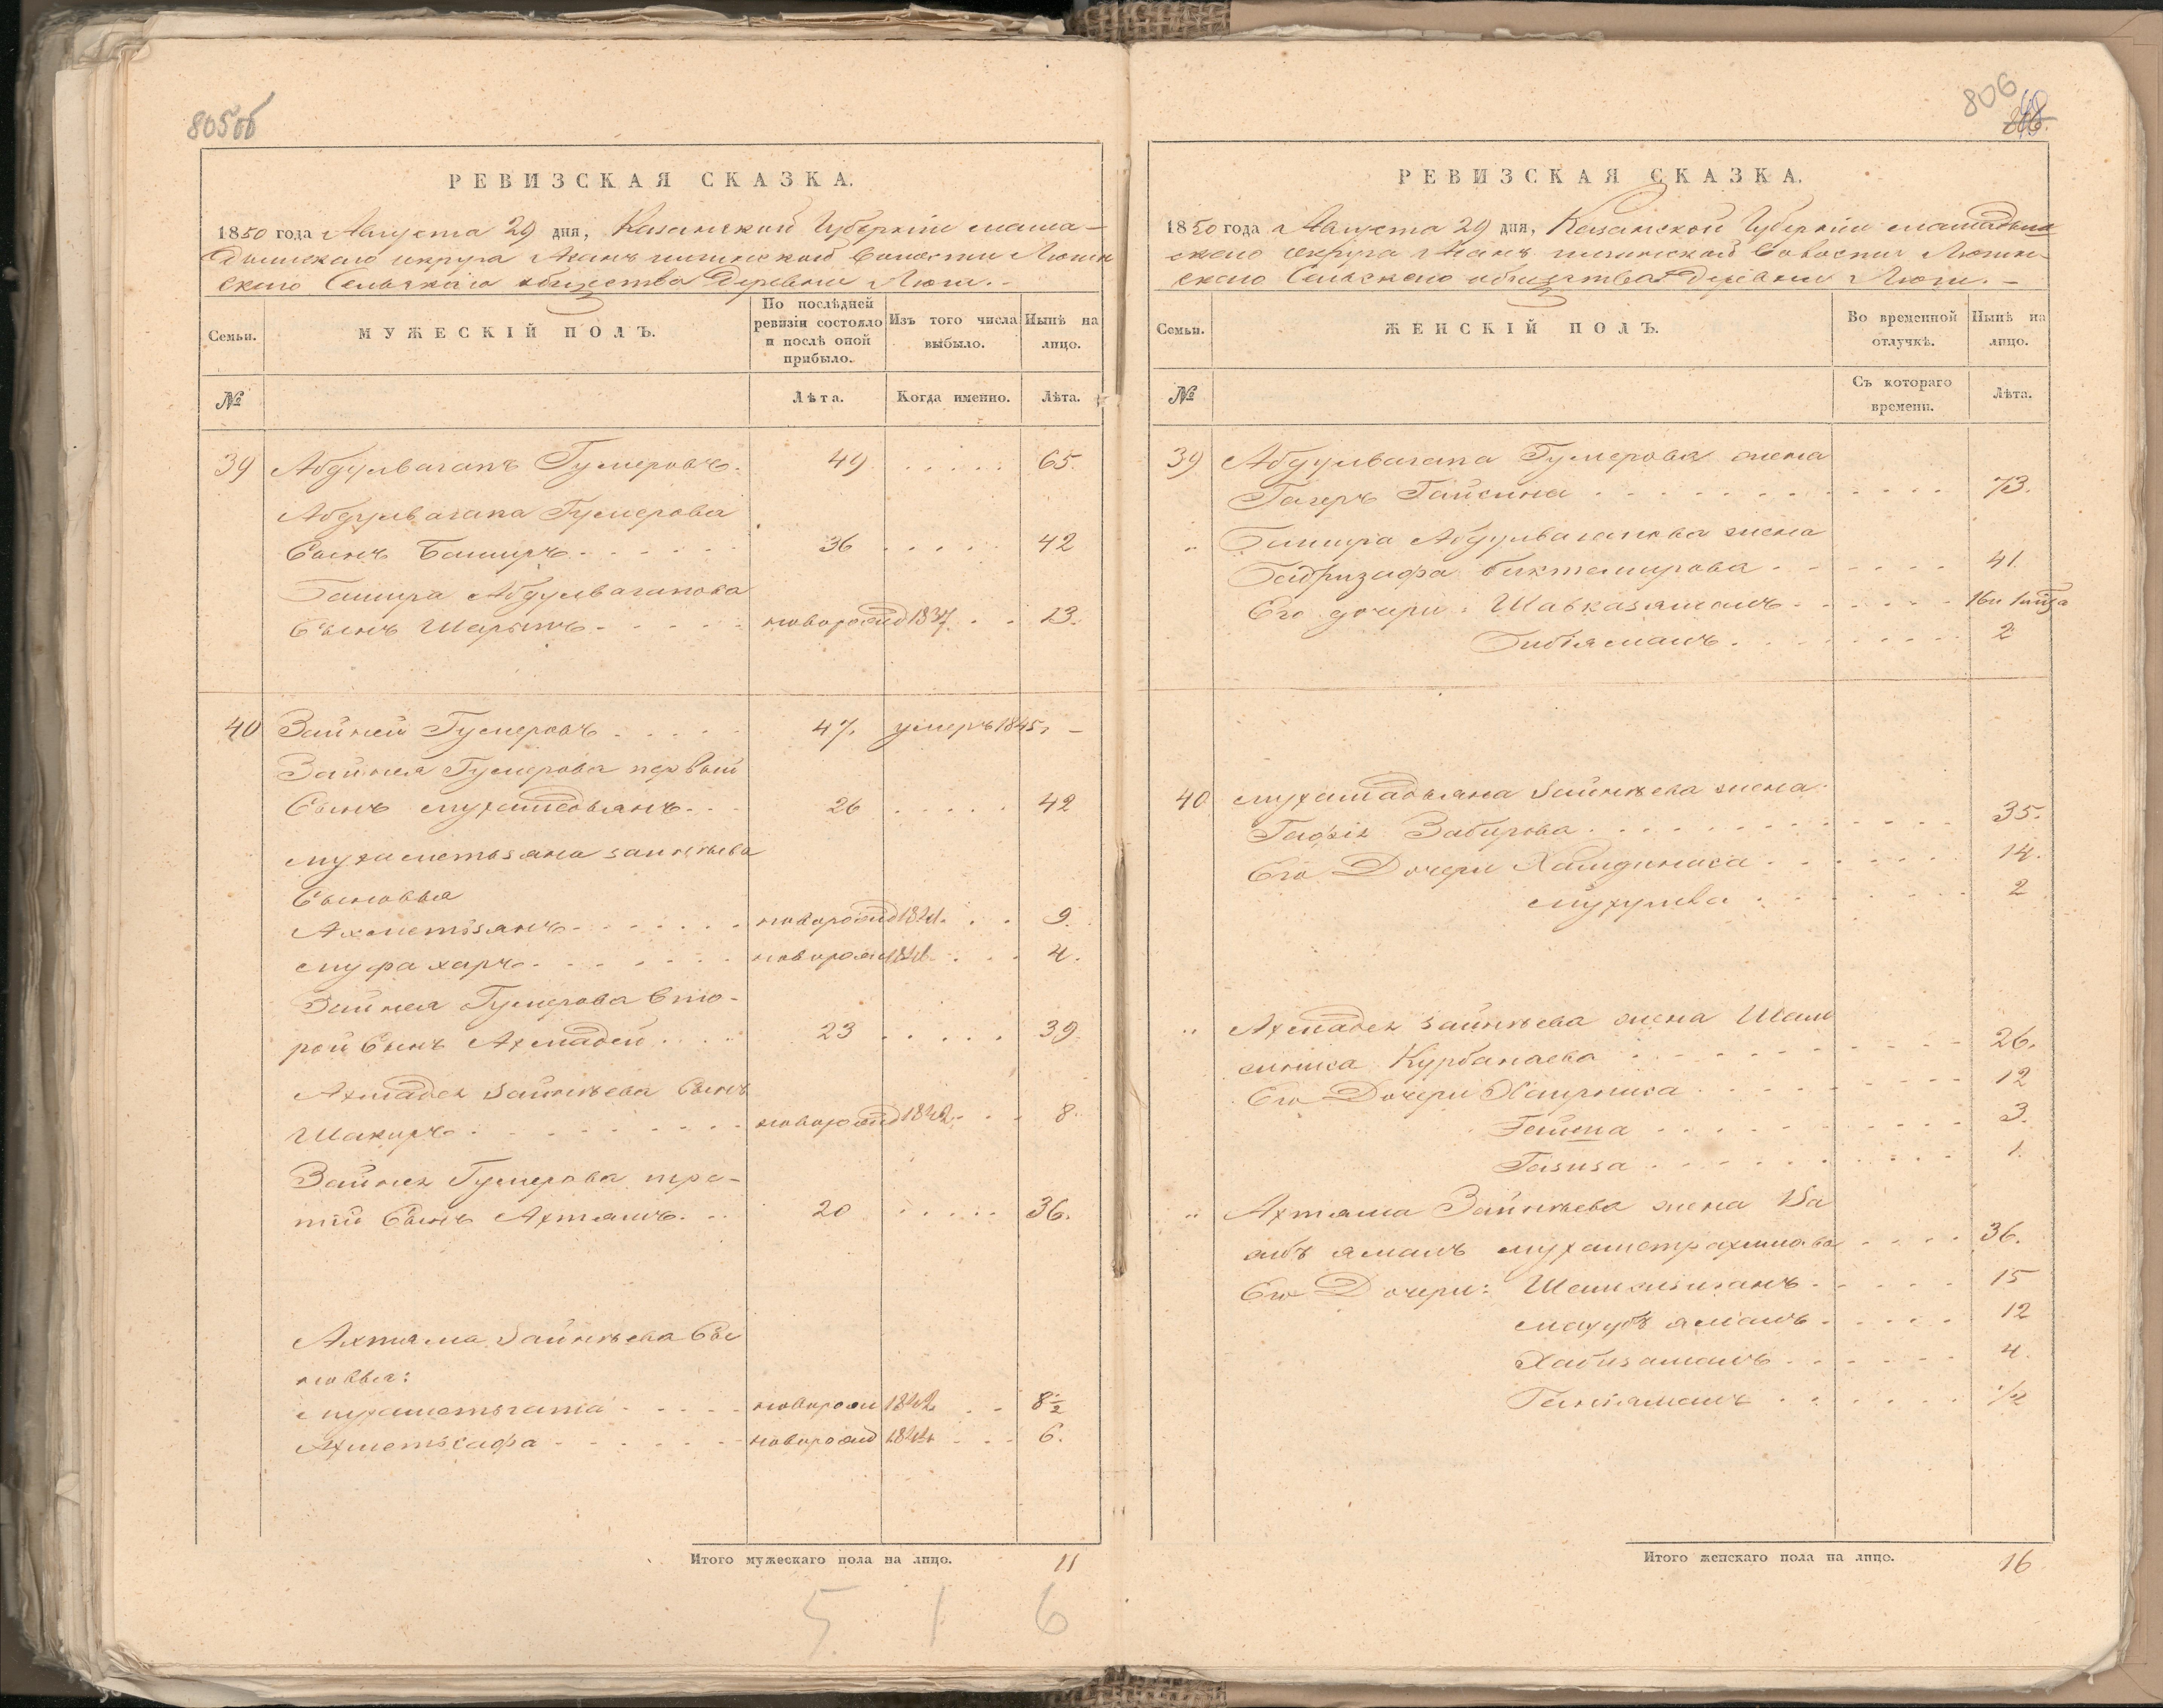 805об
РЕВИЗСКАЯ СКАЗКА.
1850 года Августа 29 дня, Казанской Губерніи мама-
дышскаго округа волости Люгин
скаго Сельскаго общества Деревни Люги.
Семьи.
МУЖЕСКІЙ ПОЛЪ.
По послѣдней ревизіи состояло и послѣ оной прибыло.
Изъ того числа выбыло.
Нынѣ на лицо.
№
Лѣта.
Когда именно.
Лѣта.
39 Абдулвагапъ Гумеровъ. 49 65.
Абдулвагапа Гумерова
Сынъ Баширъ 36 42
Башира Абдулвагапова
Сынъ Шарыпъ новорожд 1837 13.
40 Зайней Гумеровъ 47. умеръ 1845. –
Зайнея Гумерова первый
Сынъ мухамедьянъ 26 42
мухаметьзяна зайнѣева
Сыновья
Ахметьзянъ новорожд 1841. 9.
муфахаръ новорожд 1846. 4.
Зайнея Гумерова вто-
рой Сынъ Ахмадей 23 39
Ахмадея зайнѣева Сынъ
Шакиръ новорожд 1842. 8.
Зайнея Гумерова тре-
тій Сынъ Ахтямъ 20 36.
Ахтяма зайнѣева Сы
новья:
мухаметьгата новорож 1842 8 1/2
Ахметьсафа новорожд 1844 6.
Итого мужескаго пола на лицо. 11
5 1 6
806
РЕВИЗСКАЯ СКАЗКА.
1850 года Августа 29 дня, Казанской Губерніи мамадыш
скаго округа волости Люгин-
скаго Сельскаго общества Деревни Люги. –
Семьи.
ЖЕНСКІЙ ПОЛЪ.
Во временной отлучкѣ.
Нынѣ на лицо.
№
Съ котораго времени.
Лѣта.
39 Абдулвагапа Гумерова жена
Гайсина 73.
" Башира Абдулвагапова жена
Бадризафа биктемирова 41.
Его дочери: Шавказямалъ
Бибіямалъ 2
40 мухамадьяна зайнѣева жена
Гафія Забирова 35.
Его Дочери Хамдиниса 14.
2
" Ахмадея зайнѣева жена Шам
синиса Курбанаева 26.
Его Дочери Хаирниса 12
Гайша 3.
Газиза 1.
" Ахтяма Зайнѣева жена
мухаметрахимова 36.
Его Дочери: 15
махубъ ямалъ 12
Хабизамалъ 4.
Ганіямалъ 1/2
Итого женскаго пола на лицо. 16